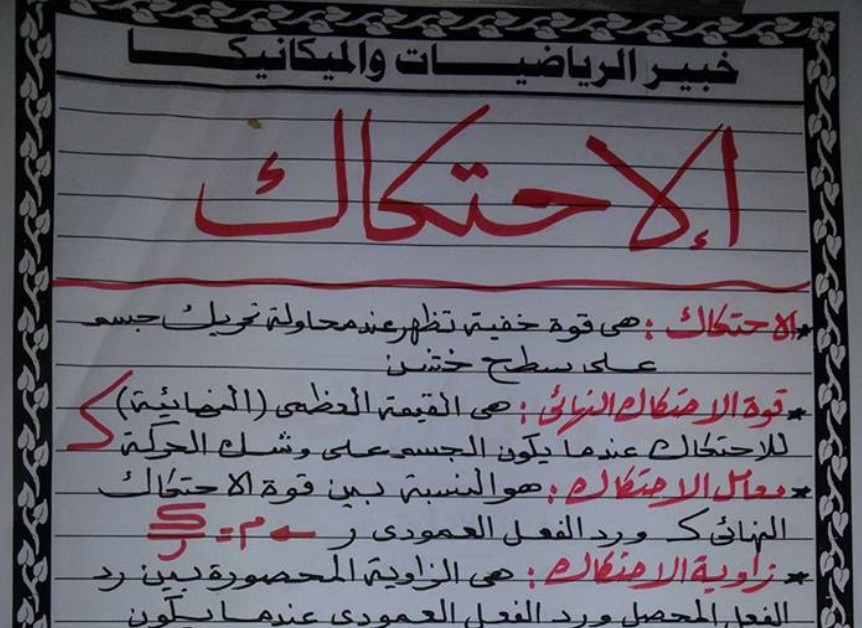 خبير الرياضيات والميكانيكا
الإحتكاك
* الاحتكاك : هى قوة خفية تظهر عند محاولة تحريك جسم
على سطح خشن
* قوة الاحتكاك النهائى : هى القيمة العظمى (النهائية)
للاحتكاك عندما يكون الجسم على وشك الحركة ک
* معامل الاحتكاك : هو النسبة بين قوة الاحتكاك
النهائى ک ورد الفعل العمودى ر ← م = ک/ر
* زاوية الاحتكاك : هى الزاوية المحصورة بين رد
الفعل المحصل ورد الفعل العمودى عندما يكون